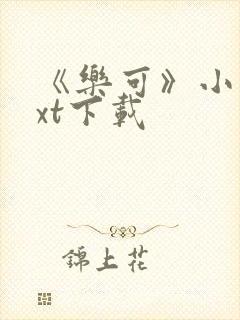 《樂可》小
xt下載
錦上花